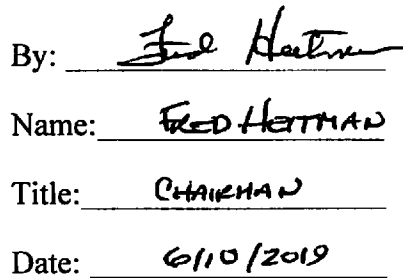 By: Fred Heitman
Name: FRED HEITMAN
Title: CHAIRMAN
Date: 6/10/2019